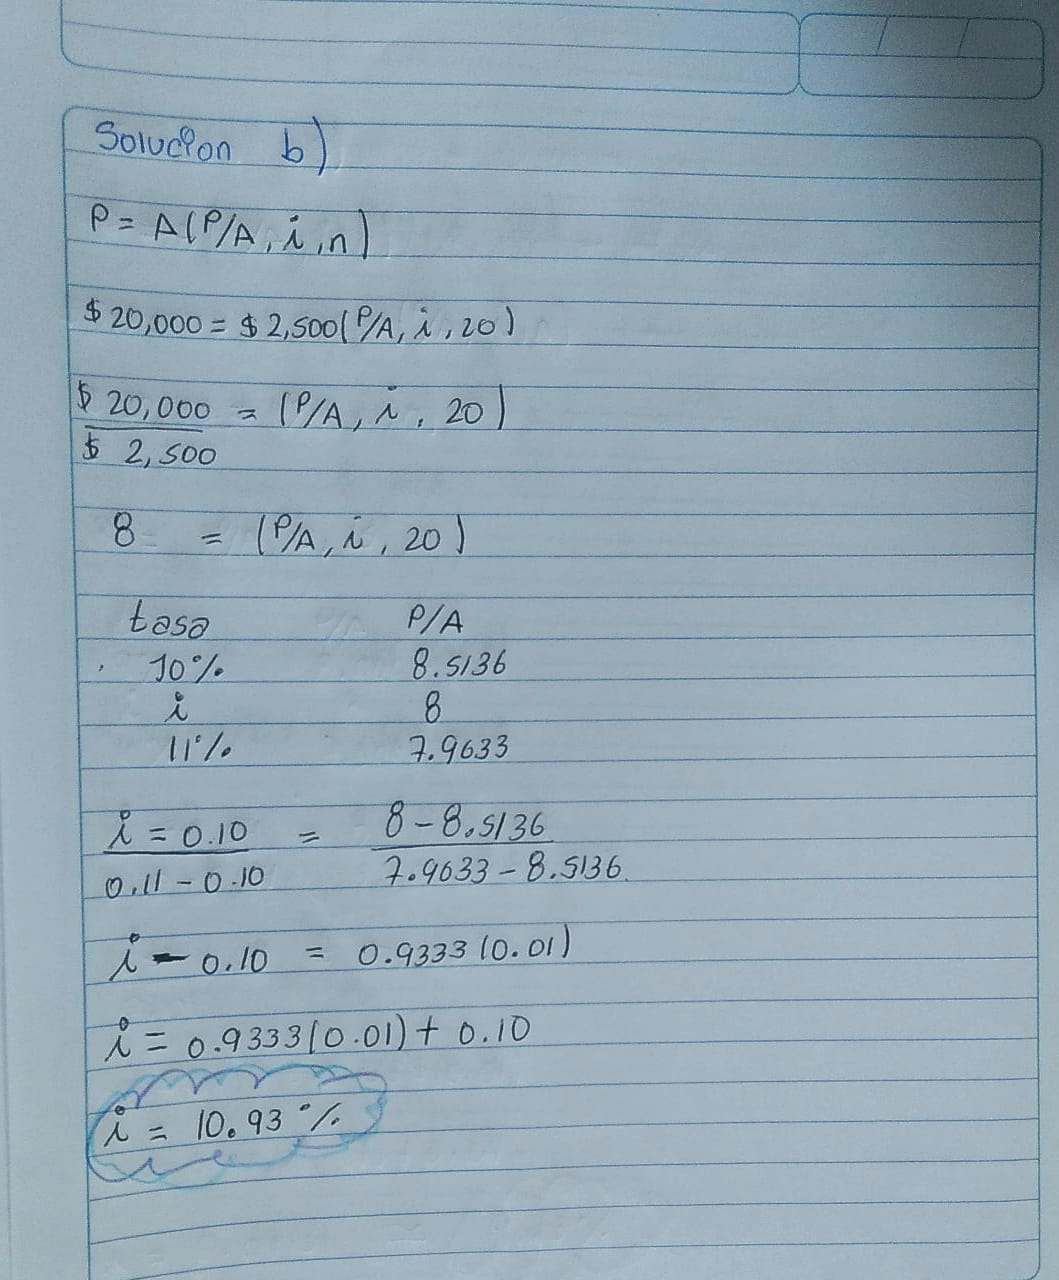 Solucion b)
P = A(P/A, i, n)
$ 20,000 = $ 2,500(P/A, i, 20)
$ 20,000 = (P/A, i, 20)
$ 2,500
8 = (P/A, i, 20)
tasa P/A
10% 8.5136
i 8
11% 7.9633
i = 0.10 = 8 - 8.5136
0.11 - 0.10 7.9633 - 8.5136
i - 0.10 = 0.9333 (0.01)
i = 0.9333(0.01) + 0.10
i = 10.93 %